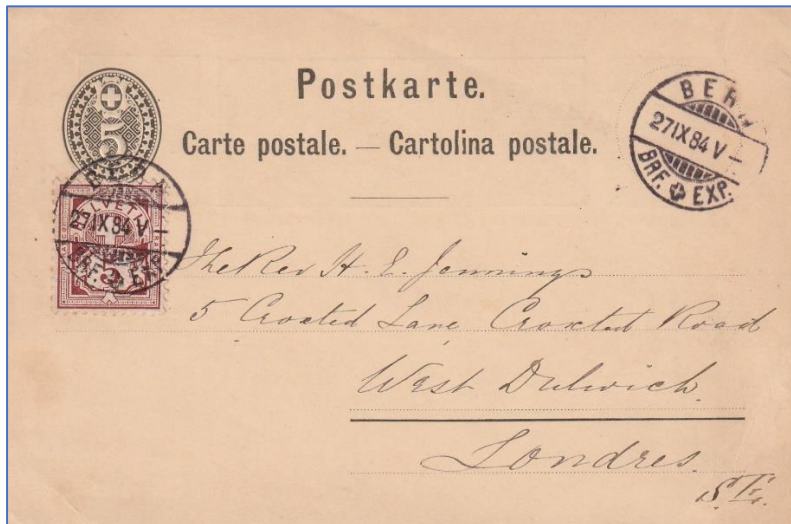 5
Postkarte.
Carte postale. — Cartolina postale.
BERN
27 IX 84 V –
BRF. EXP.
HELVETIA
5
BERN
27 IX 84 V –
BRF. EXP.
The Rev H. E. Jennings
5 Croxted Lane Croxted Road
West Dulwich.
Londres.
S.E.